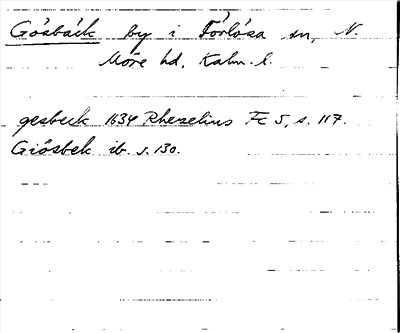 Gösbäck by i Förlösa sn, N.
Möre hd, Kalm. l.
gesbeck 1634 Rhezelius Fc 5, s. 117.
Giösbek ib. s. 130.